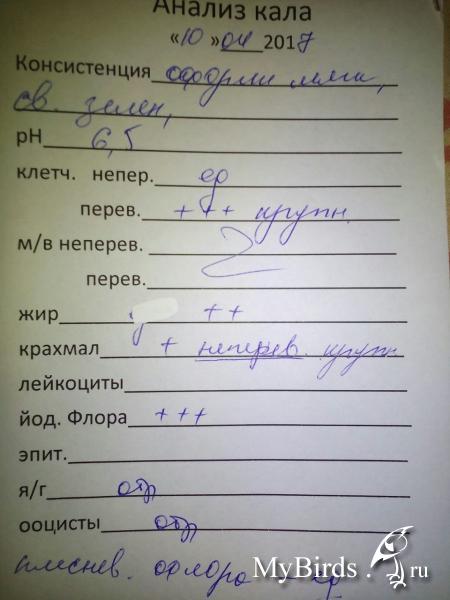 Анализ кала
«10»04 2017
Консистенция оформл мягк,
св. зелен,
pH 6,5
клетч. непер. ед
перев. +++ крупн.
м/в неперев.
перев.
жир ++
крахмал + неперев. крупн
лейкоциты
йод. Флора +++
эпит.
я/г отр
ооцисты отр
плеснев. флора
MyBirds.ru